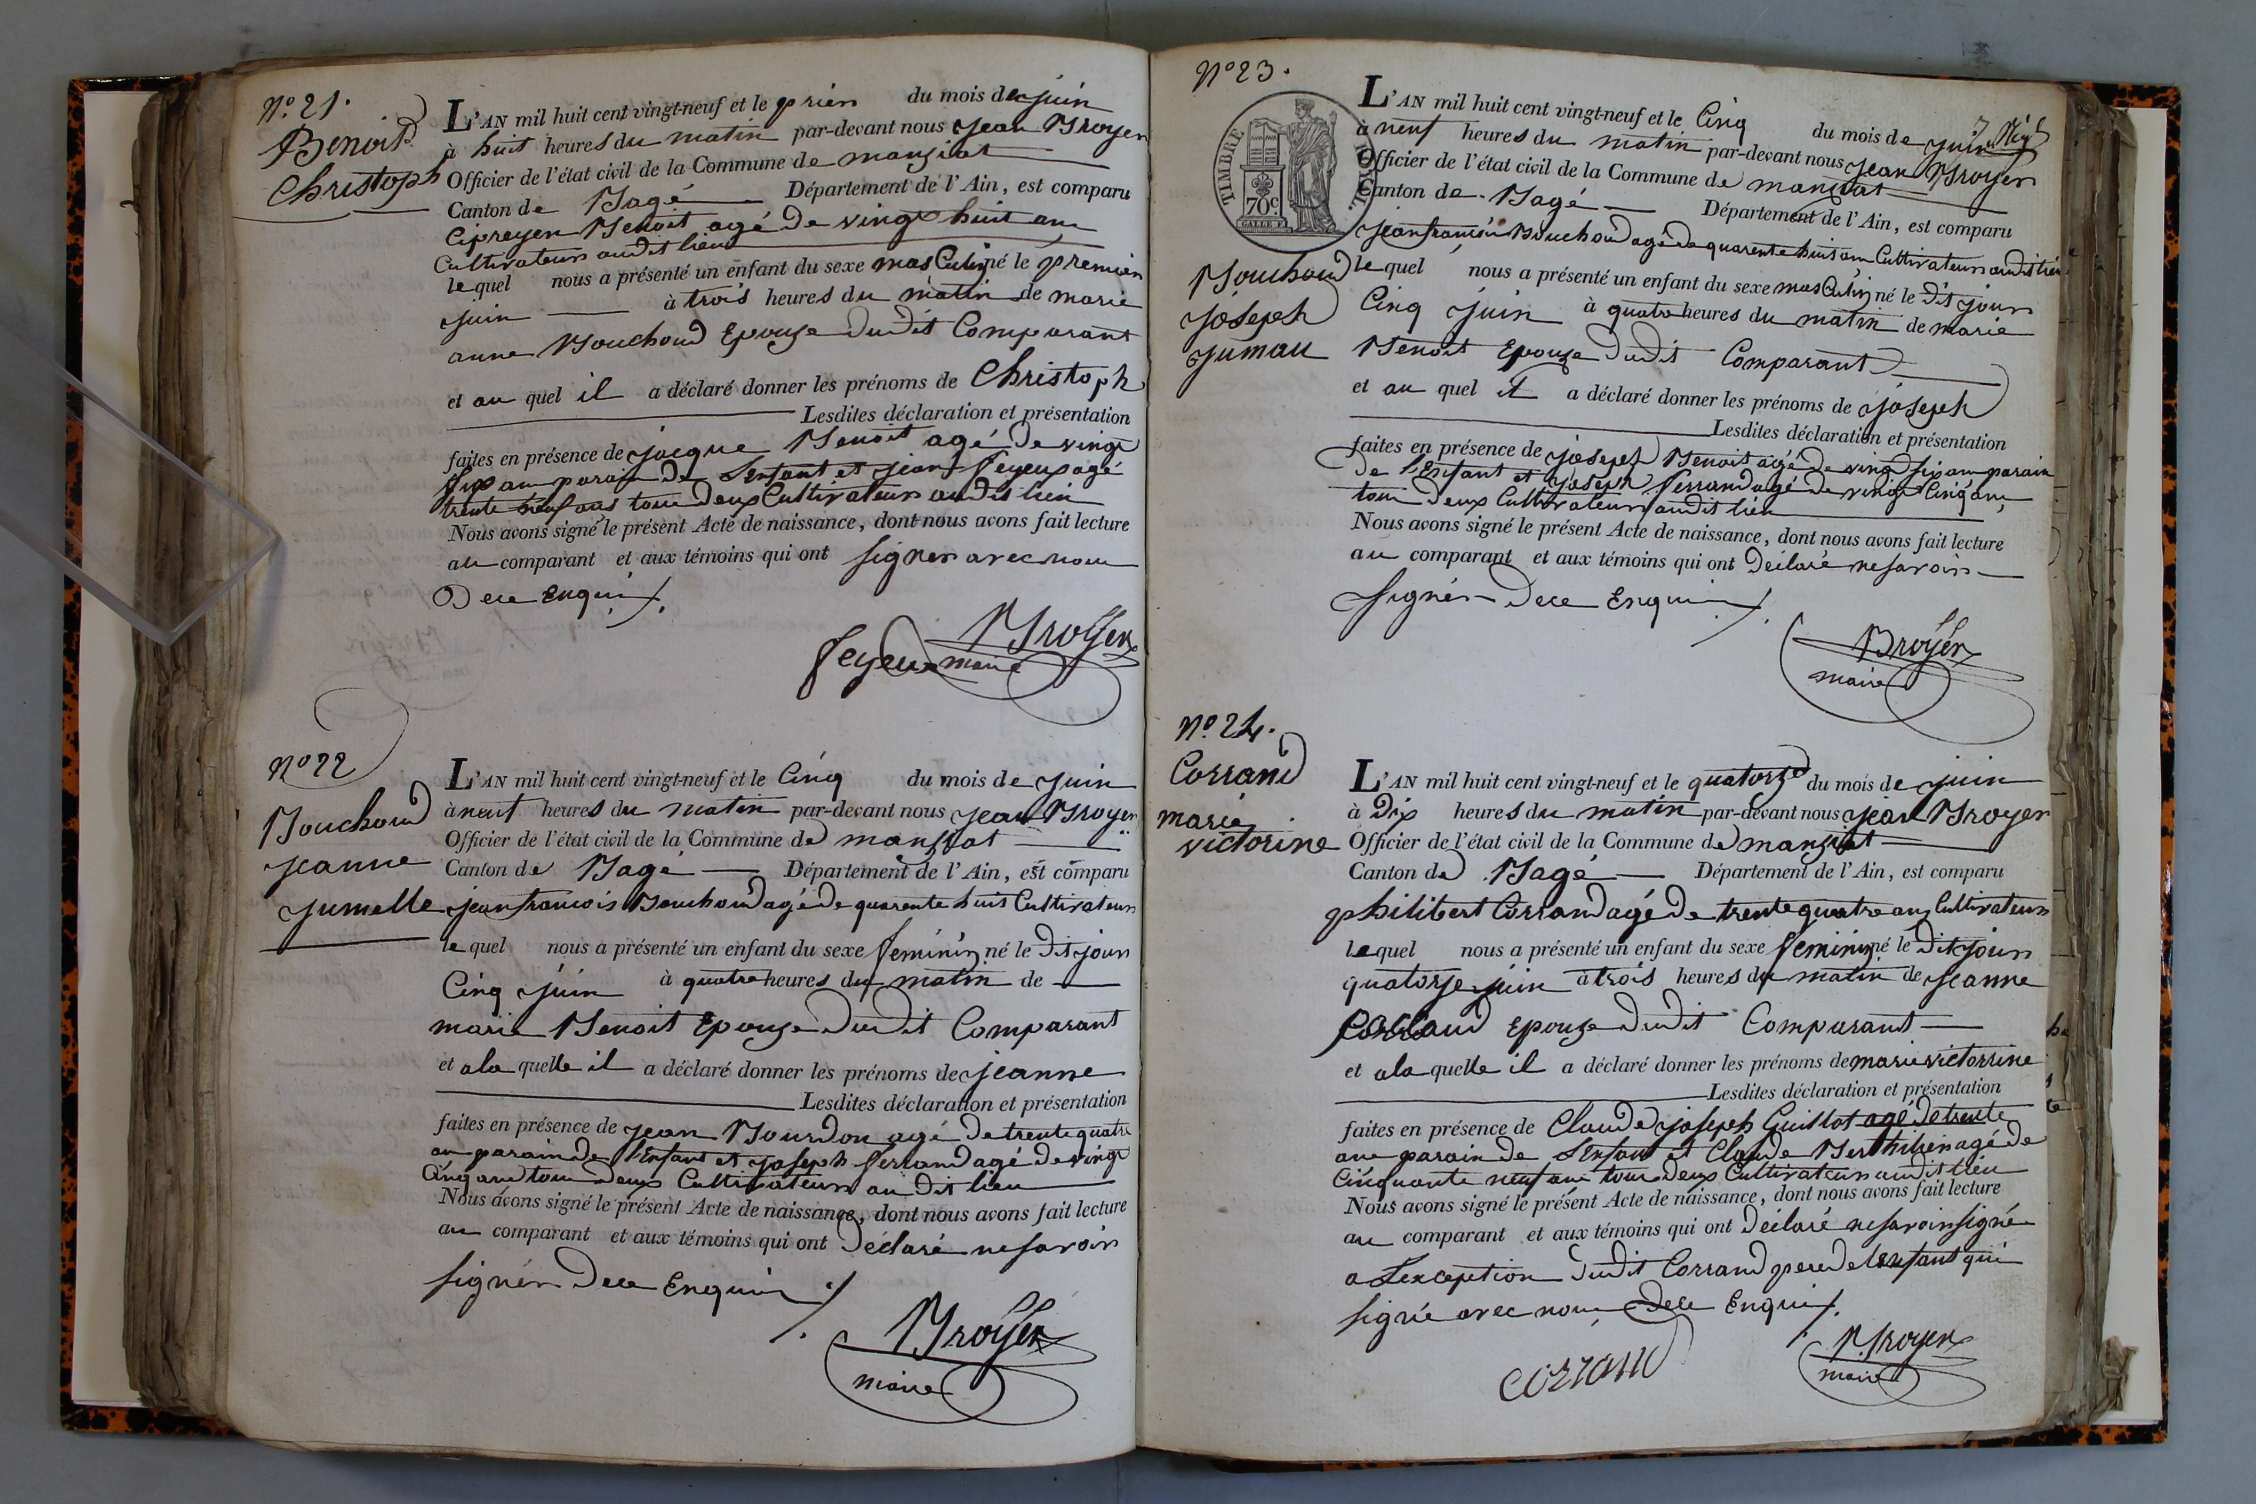 N° 21.
Benoit
Christoph
L'AN mil huit cent vingt-neuf et le prien du mois de juin
à huit heures du matin par-devant nous jean Broyer
Officier de l'état civil de la Commune de manziat
Canton de Bagé Département de l'Ain, est comparu
Benoit agé de vingt huit ans
Cultivateur audit lieu
lequel nous a présenté un enfant du sexe masculin né le premier
juin à trois heures du matin de marie
anne Bouchoud Epouze dudit Comparant
et au quel il a déclaré donner les prénoms de Christoph
Lesdites déclaration et présentation
faites en présence de jacque Benoit agé de vingt
six ans parain de L'enfant et jean feyeux agé
trente neuf ans tous deux Cultivateurs audit lieu
Nous avons signé le présent Acte de naissance, dont nous avons fait lecture
au comparant et aux témoins qui ont signer avec nous
Dece Enquis
Broyer
feyeux maire
N° 22
Bouchoud
jeanne
jumelle
L'AN mil huit cent vingt-neuf et le Cinq du mois de juin
à neuf heures du matin par-devant nous jean Broyer
Officier de l'état civil de la Commune de manziat
Canton de Bagé Département de l'Ain, est comparu
jean francois Bouchoud agé de quarente huit Cultivateur
lequel nous a présenté un enfant du sexe feminin né le Dit jour
Cinq juin à quatre heures du matin de
marie Benoit Epouze dudit Comparant
et ala quelle il a déclaré donner les prénoms de jeanne
Lesdites déclaration et présentation
faites en présence de jean Bourdon agé de trente quatre
an parain de l'Enfant et joseph ferrand agé de vingt
Cinq ans tous deux Cultivateurs au dit lieu
Nous avons signé le présent Acte de naissance, dont nous avons fait lecture
au comparant et aux témoins qui ont Déclaré ne savoir
signér Dece Enquis
Broyer
maire
N° 23.
TIMBRE ROYAL
70c
Bouchoud
joseph
jumau
L'AN mil huit cent vingt-neuf et le Cinq du mois de juin
à neuf heures du matin par-devant nous jean Broyer
Officier de l'état civil de la Commune de manziat
Canton de Bagé Département de l'Ain, est comparu
jean francois Bouchoud agé de quarente huit ans Cultivateur audit lieu
lequel nous a présenté un enfant du sexe masculin né le Dit jour
Cinq juin à quatre heures du matin de marie
Benoit Epouze dudit Comparant
et au quel il a déclaré donner les prénoms de joseph
Lesdites déclaration et présentation
faites en présence de joseph Benoit agé de vingt six ans parain
de l'Enfant et joseph ferrand agé de vingt Cinq ans
tous deux Cultivateurs audit lieu
Nous avons signé le présent Acte de naissance, dont nous avons fait lecture
au comparant et aux témoins qui ont Déclaré ne savoir
signér Dece Enquis
Broyer
maire
N° 24.
Corrand
marie
victorine
L'AN mil huit cent vingt-neuf et le quatorze du mois de juin
à Dix heures du matin par-devant nous jean Broyer
Officier de l'état civil de la Commune de manziat
Canton de Bagé Département de l'Ain, est comparu
philibert Corrand agé de trente quatre ans Cultivateur
lequel nous a présenté un enfant du sexe feminin né le Dit jour
quatorze juin à trois heures du matin de jeanne
Corrand Epouze dudit Comparant
et ala quelle il a déclaré donner les prénoms de marie victorrine
Lesdites déclaration et présentation
faites en présence de Claude joseph Guillot agé de trente
ans parain de L'enfant et Claude Berthilier agé de
Cinquante neuf ans tous deux Cultivateurs audit lieu
Nous avons signé le présent Acte de naissance, dont nous avons fait lecture
au comparant et aux témoins qui ont Déclaré ne savoir signé
a L'exception dudit Corrand pere de lenfant qui
signé avec nous Dece Enquis
Corrand
Broyer
maire